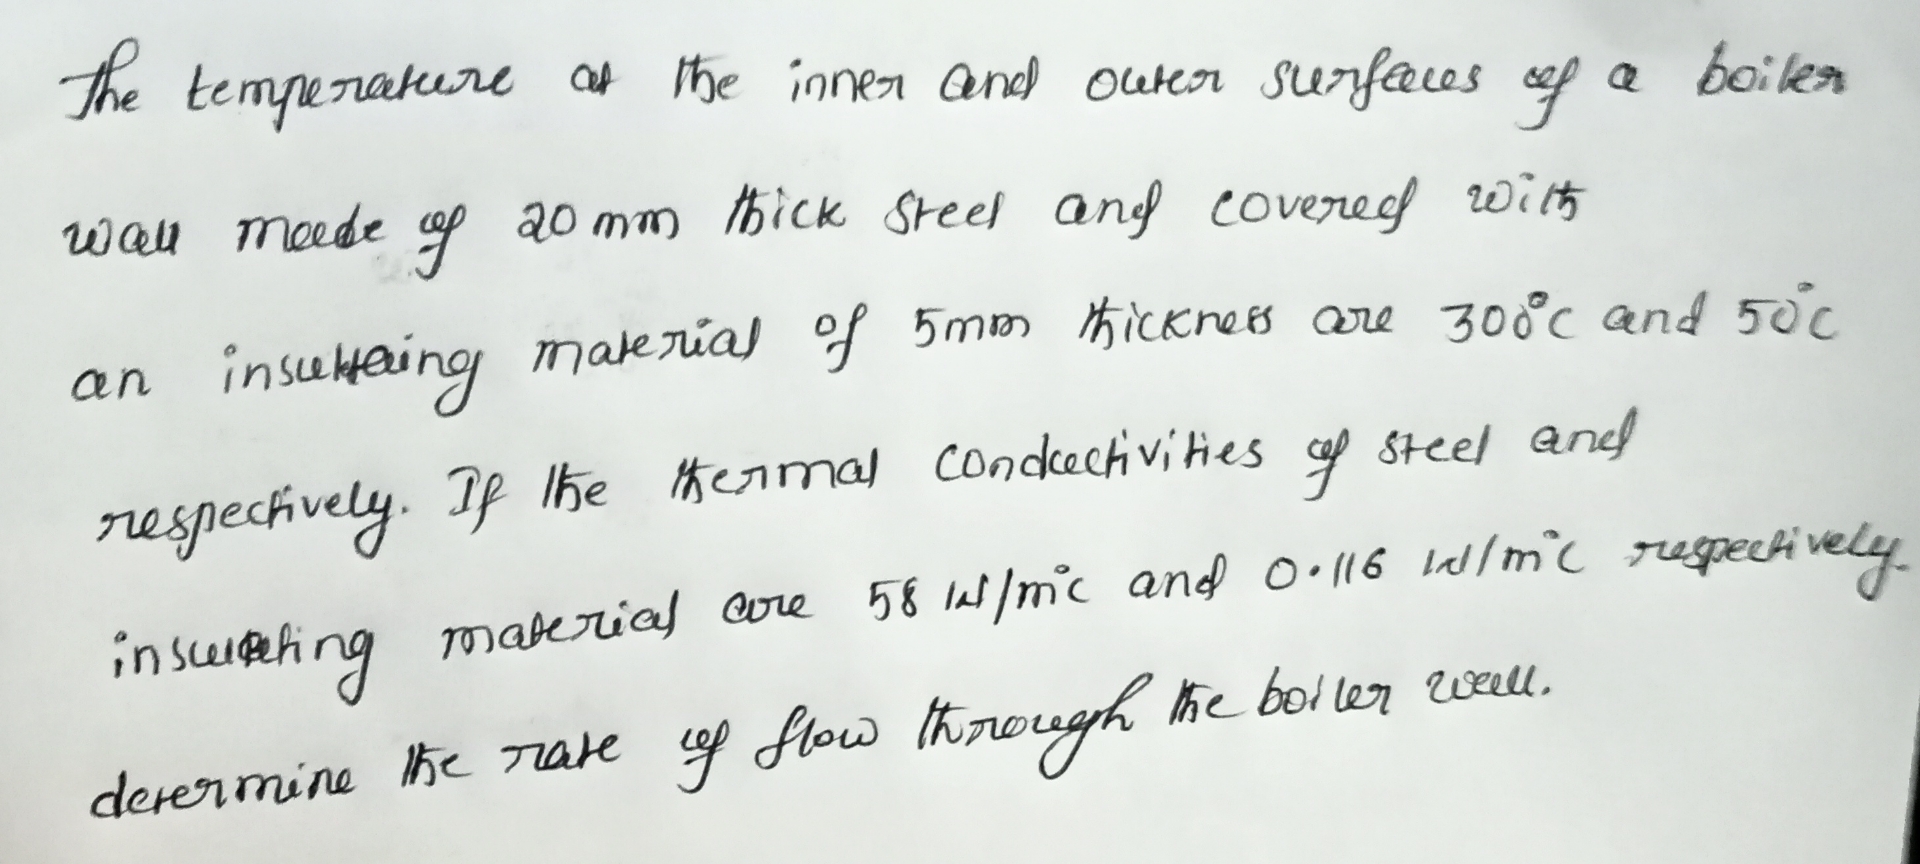 The temperature at the inner and outer surfaces of a boiler
wall made of 20 mm thick steel and covered with
an insulating material of 5mm thickness are 300°C and 50°C
respectively. If the thermal conductivities of steel and
insulating material are 58 W/m°c and 0.116 W/m°C respectively.
determine the rate of flow through the boiler wall.